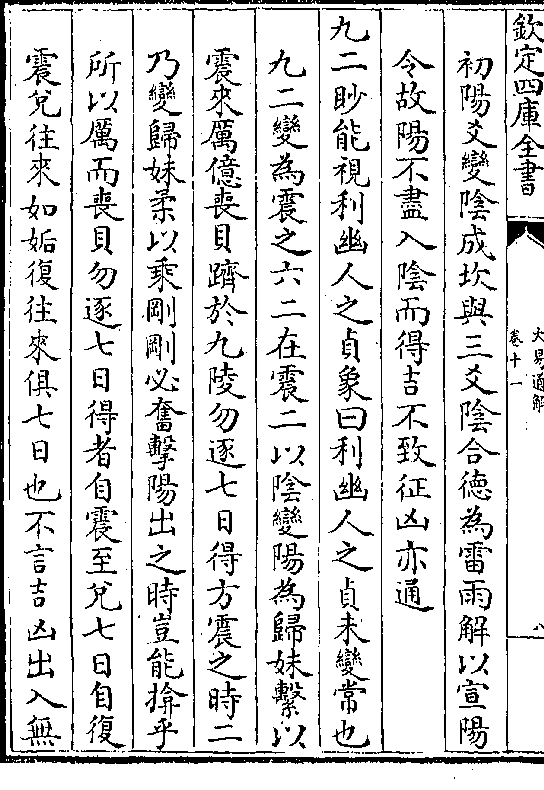 欽定四庫全書
大易通解
卷十一
八
初陽爻變陰成坎與三爻陰合德為雷雨解以宣陽
令故陽不盡入陰而得吉不致征凶亦通
九二眇能視利幽人之貞象曰利幽人之貞未變常也
九二變為震之六二在震二以陰變陽為歸妹繫以
震來厲億喪貝躋於九陵勿逐七日得方震之時二
乃變歸妹柔以乘剛剛必奮擊陽出之時豈能揜乎
所以厲而喪貝勿逐七日得者自震至兌七日自復
震兌往來如姤復往來俱七日也不言吉凶出入無